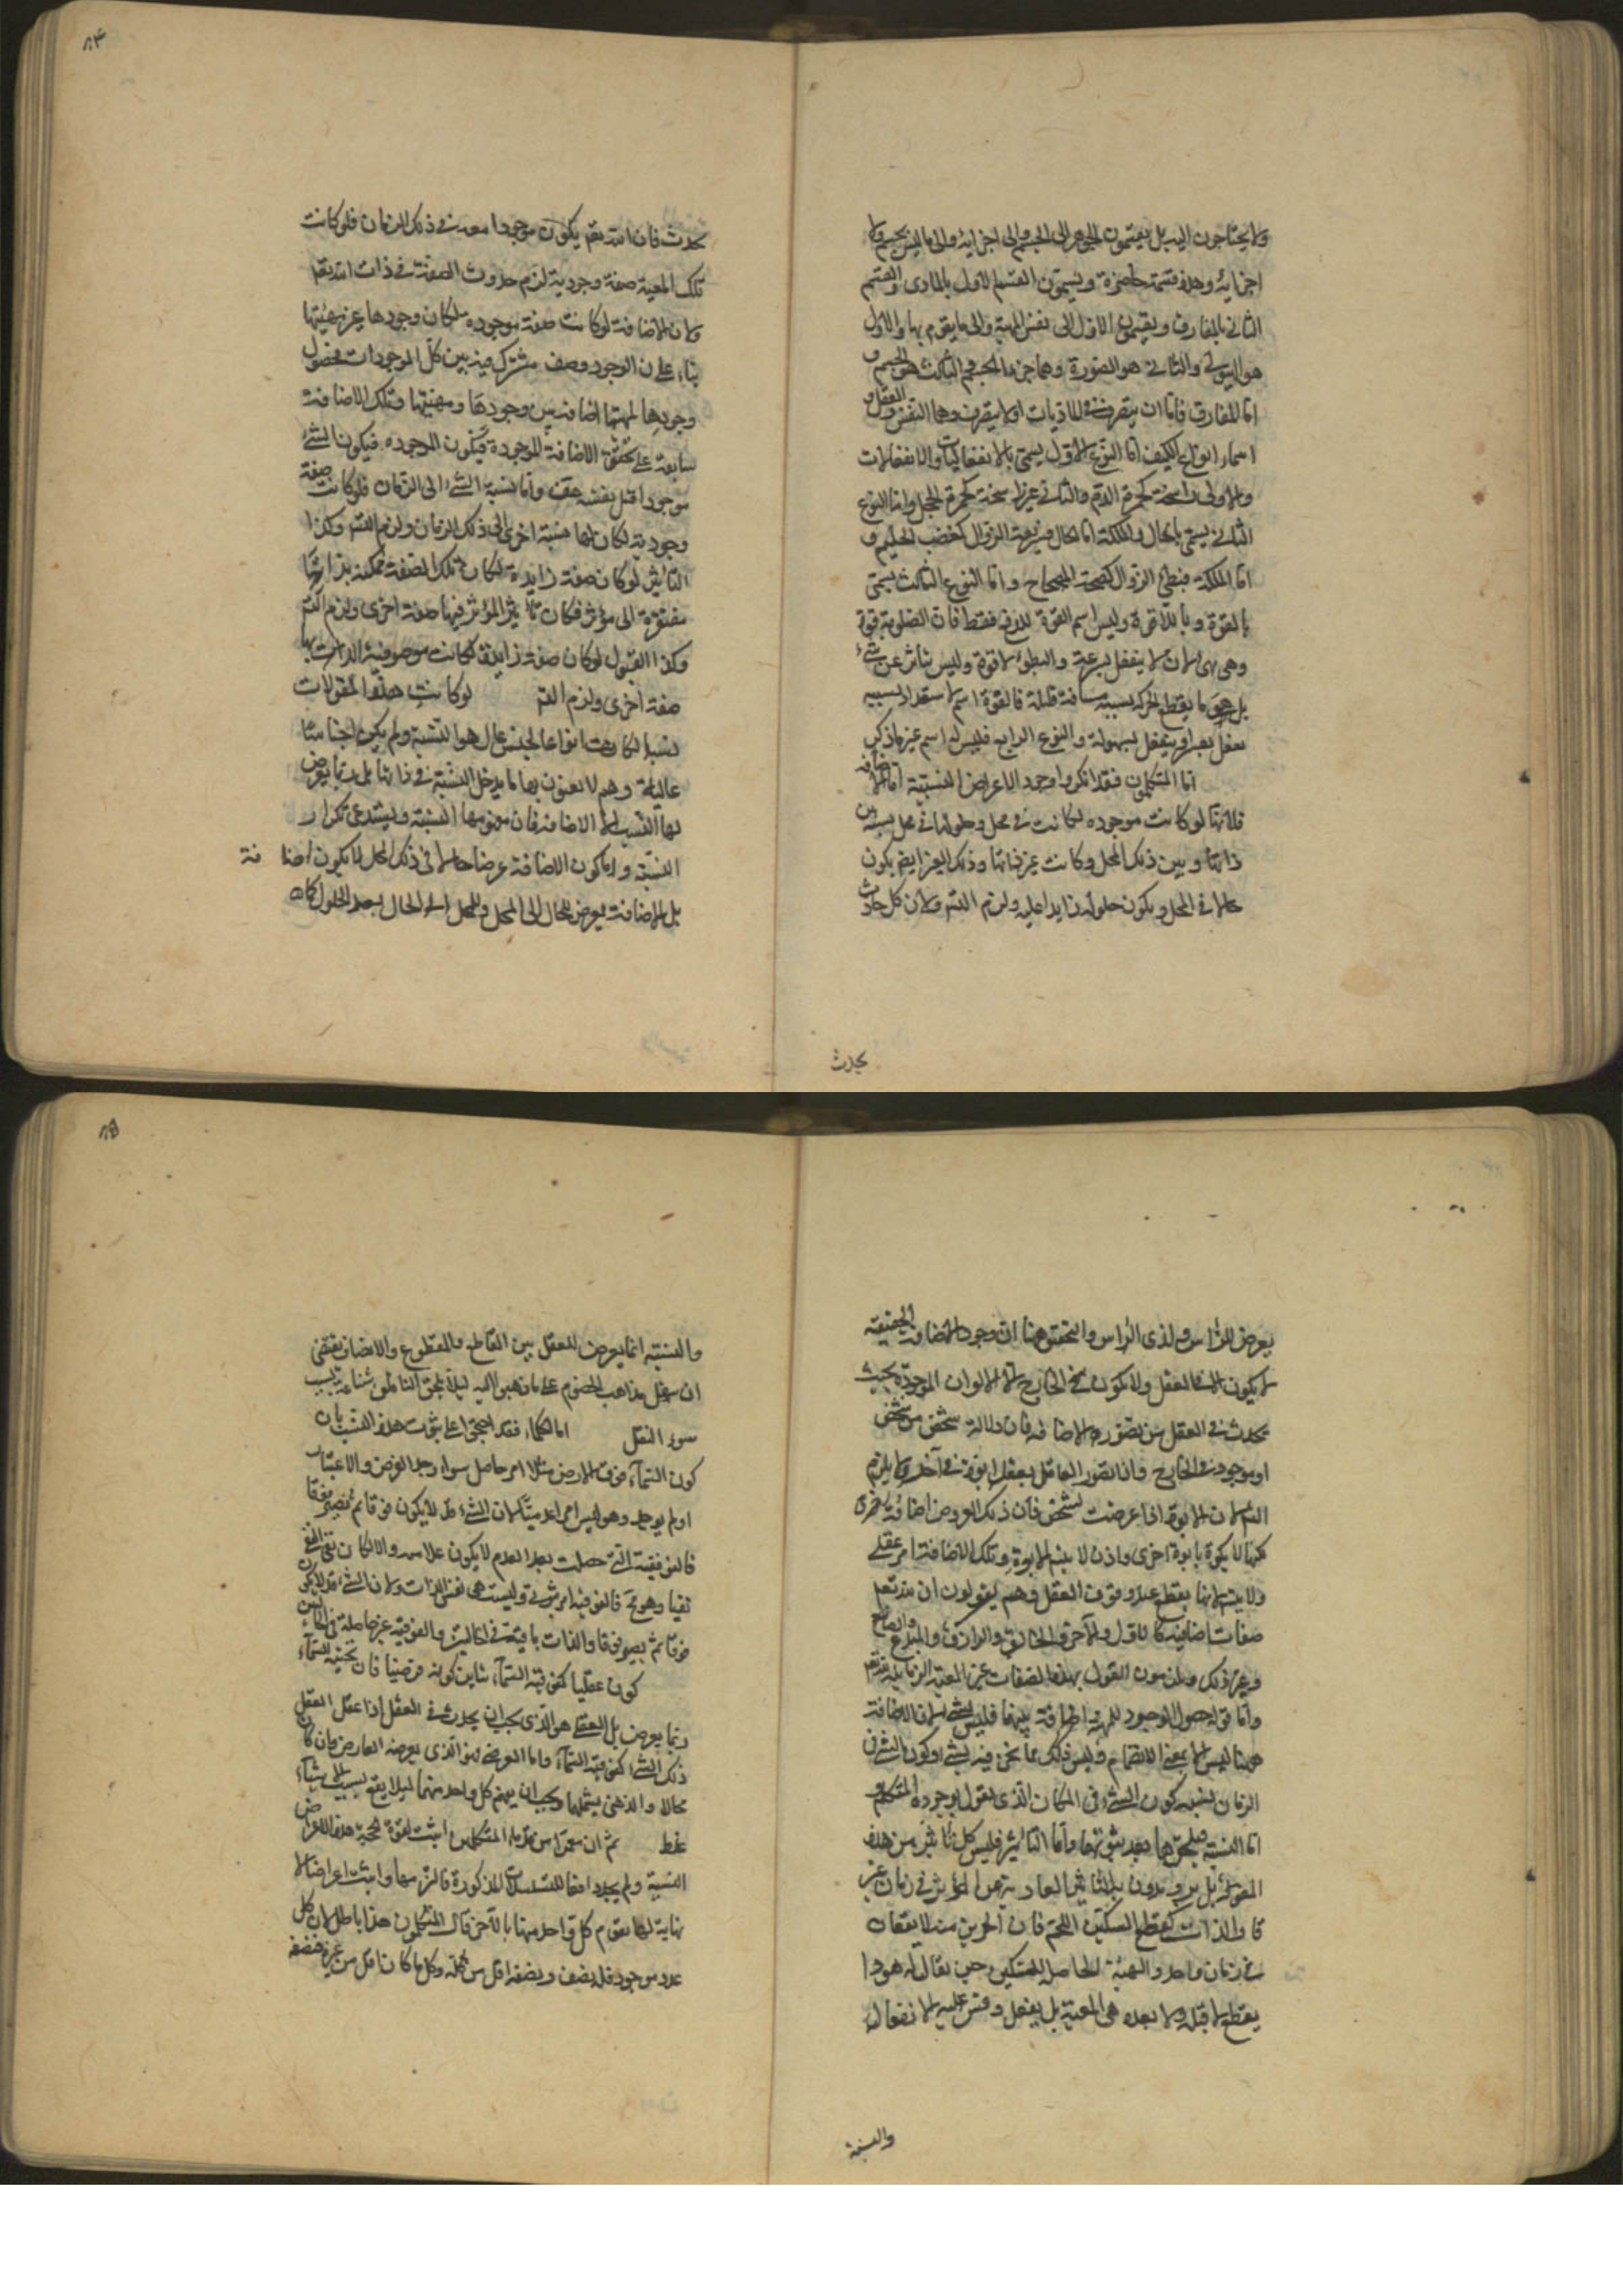 ولا يحتاجون اليه بل يقسمون الجوهر الى الجسم والى اجزائه والى ما ليس بجسم ولا
اجزائه وهذه قسمة حاضرة ويسمون القسم الاول بالمادى والقسم
الثانى بالمفارق ويقسمون الاول الى نفس المهية والى ما يقوم بها والاول
هو الهيولى والثانى هو الصورة وهما جزءا الجسم والثالث هو الجسم و
اما المفارق فاما ان يتصرف فى الماديات او لا يتصرف وهما النفس والعقل و
اسماء انواع الكيف اما النوع الاول يسمى بالانفعاليات والانفعالات
والاولى راسخة كحمرة الدم والثانى غير راسخة كحمرة الخجل واما النوع
الثانى يسمى بالحال والملكة اما الحال فسريعة الزوال كغضب الحليم و
اما الملكة فبطئ الزوال كصحة المصحاح واما النوع الثالث يسمى
بالقوة وباللاقوة وليس اسم القوة للدفع فقط فان الصلوبة قوة
وهى ان لا ينفعل بسرعة والبطؤ لاقوة وليس يتأثر عن شئ
بل هو ما يقطع المتحرك بسببه مسافة قليلة فالقوة اسم لاستعداد بسببه
يفعل بعسر او ينفعل بسهولة والنوع الرابع فليس له اسم غير ما ذكر
اما المتكلمون فقد انكروا وجود الاعراض النسبية اما الاضافه
فلانها لو كانت موجوده لكانت فى محل وحلولها فى محل نسبة بين
ذاتها وبين ذلك المحل وكانت غير ذاتها وذلك الغير ايضا يكون
حالا فى المحل ويكون حلوله زايدا عليه ولزم التسم ولان كل حادث
يحدث
٨٤
يحدث فان الله تعم يكون موجودا معه فى ذلك الزمان فلو كانت
تلك المعية صفة وجودية لزم حدوث الصفة فى ذات الله تعم
ولان الاضافة لو كانت صفة موجوده لكان وجودها غير مهيتها
بناء على ان الوجود وصف مشترك فيه بين كل الموجودات فحصول
وجودها لمهيتها اضافه بين وجودها ومهيتها وتلك الاضافة
سابقة على تحقق الاضافة الموجودة فيكون الموجوده فيكون الشئ
موجودا قبل نفسه هف واما نسبة الشئ الى الزمان فلو كانت صفة
وجودية لكان لها نسبة اخرى الى ذلك الزمان ولزم التسم وكذا
التاثير لو كان صفة زايدة لكان تلك الصفة ممكنه بذاتها
مفتقرة الى مؤثر فكان تأثير المؤثر فيها صفة اخرى ولزم التسم
وكذا القبول لو كان صفة زايدة لكانت موصوفية الذات بها
صفة اخرى ولزم التسم لو كانت هذه المقولات
نسبا لكانت انواعا لجنس عال هو النسبة ولم يكن اجناسا
عالية وهم لا يعنون بها ما يدخل النسبة فى ذاتها بل ربما يعرض
لها النسب الا الاضافه فان مفهومها النسبة ويستدعى تكرار
النسبة واما كون الاضافة عرضا حالا فى ذلك المحل لا يكون اضافة
بل الاضافة يعرض للحال الى المحل وللمحل الى الحال بعد الحلول كما
يعرض للراس ولذى الراس والتحقيق ههنا ان وجود الاضافة الحقيقيه
لا يكون الا فى العقل ولا يكون فى الخارج الا الالوان الموجودة بحيث
يحدث فى العقل من تصوره الاضافه فان ولادة شخص من شخص
امر موجود فى الخارج وان تصور العاقل يعقل ابوة فى آخر ولا يلزم
التسم لان الابوة اذا عرضت لشخص فان ذلك العروض اضافة اخرى
لكنها لا يكون بابوة اخرى واذن لا ينسم الابوة وتلك الاضافة امر عقلى
ولا ينسم لانها ينقطع عند وقوف العقل وهم يقولون ان لله تعم
صفات اضافيه كالاول والآخر والخالق والرازق والمبدع والصانع
وغير ذلك ويلزمون القول بهذه الصفات غير المعية الزمانية لله تعم
واما قوله حصول الوجود للمهية اضافة بينهما فليس بشئ لان الاضافة
ههنا ليس الا بمعنى الانضمام وليس ذلك مما نحن فيه بشئ وكون الشئ فى
الزمان يشبه كون الشئ فى المكان الذى يقول بوجوده المتكلم و
اما النسبة فيلحقهما بعد ثبوتهما واما التاثير فليس كل تأثير من هذه
المقولة بل يريدون به التاثير العارض للمؤثر فى زمان غير
قار الذات كقطع السكين اللحم فان الجزئين منه لا يقعان
فى زمان واحد والهيئة الحاصله للسكين حين يقال له هو ذا
يقطع لا قبله ولا بعده هى المعنية بان يفعل وقس عليه الانفعال
والنسبة
٨٥
والنسبة انما يعرض للعقل بين القاطع والمقطوع والانصاف يقتضى
ان ينقل مذاهب الخصوم على ما ذهبوا اليه ليلا يلحق الناقل شناعة بسبب
سوء النقل اما الحكماء فقد احتجوا على ثبوت هذه النسب بان
كون السماء فوق الارض مثلا امر حاصل سواء وجد الفرض والاعتبار
او لم يوجد وهو ليس امرا عدميا لان الشئ قد لا يكون فوقا ثم يصير فوقا
فالفوقية التى حصلت بعد العدم لا يكون عدمية والا لكان نفى النفى
نفيا وهو مح فالفوقية امر ثبوتى وليست هى نفس الذات ولان الشئ قد لا يكون
فوقا ثم يصير فوقا والذات باقية فى الحالين والفوقية غير حاصلة فى الحالين
كون عقليا كفوقية السماء يباين كونه فرضيا فان تحتية السماء
ربما يعرض بل العقلى هو الذى يجب ان يحدث فى العقل اذا عقل العقل
ذلك الشئ كفوقية السماء واما الفرضى فهو الذى يفرضه الفارض وان كان
محالا والذهنى يشملهما ويجب ان يفهم كل واحد منهما ليلا يقع بسبب الاشتباه
غلط ثم ان معمرا من قدماء المتكلمين اثبت لقوة حجة هذه الاعراض
النسبية ولم يجد دافعا للتسلسلات المذكورة فالتزمها واثبت اعراضا لا
نهاية لها يقوم كل واحد منها بالآخر قال المتكلمون هذا باطل لان كل
عدد موجود فله نصف ونصفه اقل من كله وكل ما كان اقل من غيره فنصفه